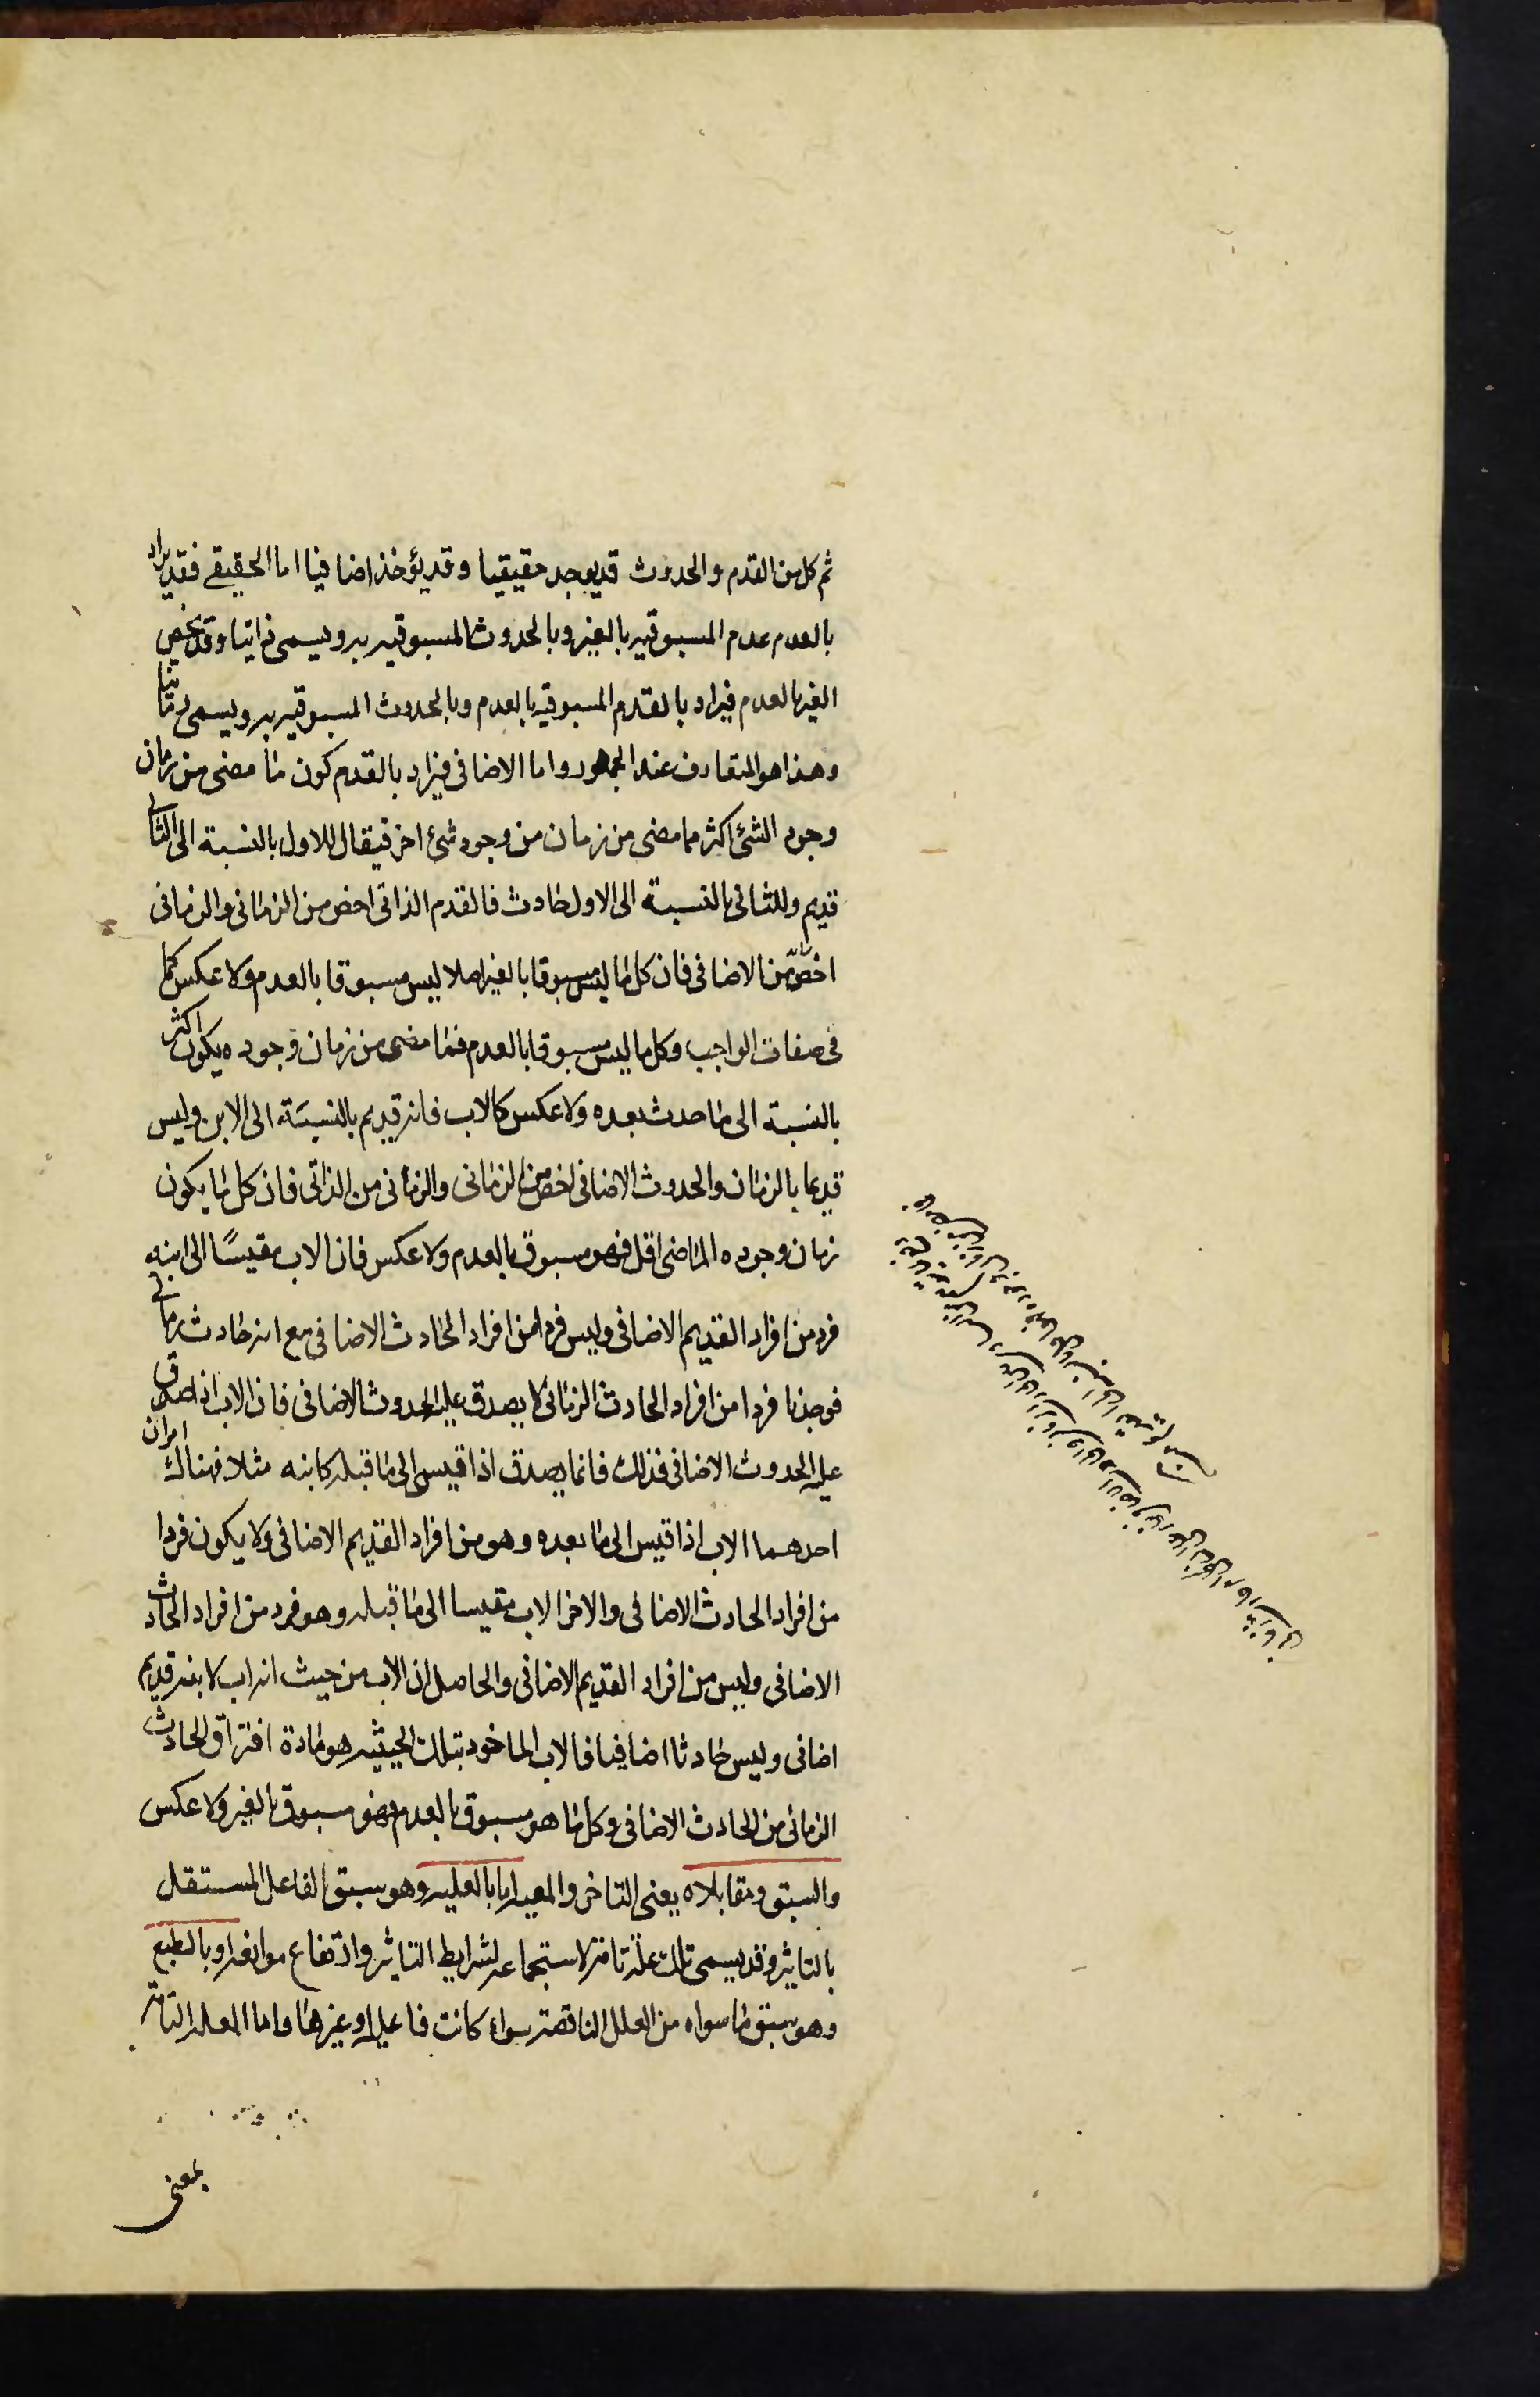 ثم كل من القدم والحدوث قد يوجد حقيقيا وقد يؤخذ اضافيا اما الحقيقي فقد يراد
بالعدم عدم المسبوقيه بالغير وبالحدوث المسبوقيه به ويسمى ذاتيا وقد يخص
الغير بالعدم فيراد بالقدم المسبوقيه بالعدم وبالحدوث المسبوقيه به ويسمى زمانيا
وهذا هو المتعارف عند الجمهور واما الاضافى فيراد بالقدم كون ما مضى من زمان
وجود الشئ اكثر مما مضى من زمان من وجود شئ اخر فيقال للاول بالنسبة الى الثانى
قديم وللثانى بالنسبة الى الاول حادث فالقدم الذاتى اخص من الزمانى والزمانى
اخص من الاضافى فان كل ما ليس مسبوقا بالغير اصلا ليس مسبوقا بالعدم ولا عكس كما
فى صفات الواجب وكل ما ليس مسبوقا بالعدم فما مضى من زمان وجوده يكون اكثر
بالنسبة الى ما حدث بعده ولا عكس كالاب فانه قديم بالنسبة الى الابن وليس
قديما بالزمان والحدوث الاضافى اخص من الزمانى والزمانى من الذاتى فان كل ما يكون
زمان وجوده الماضى اقل فهو مسبوق بالعدم ولا عكس فان الاب مقيسًا الى ابنه
فرد من افراد القديم الاضافى وليس فردا من افراد الحادث الاضافى مع انه حادث زمانى
فوجدنا فردا من افراد الحادث الزمانى لا يصدق عليه الحدوث الاضافى فان الاب اذا صدق
عليه الحدوث الاضافى فذلك فانما يصدق اذا قيس الى ما قبله كابنه مثلا فهناك امران
احدهما الاب اذا قيس الى ما بعده وهو من افراد القديم الاضافى ولا يكون فردا
من افراد الحادث الاضافى والاخر الاب مقيسا الى ما قبله وهو فرد من افراد الحادث
الاضافى وليس من افراد القديم الاضافى والحاصل ان الاب من حيث انه اب لابنه قديم
اضافى وليس حادثا اضافيا فالاب الماخوذ بتلك الحيثيه هو مادة افتراق الحادث
الزمانى من الحادث الاضافى وكل ما هو مسبوق بالعدم فهو مسبوق بالغير ولا عكس
والسبق ومقابلاه يعنى التاخر والمعيه اما بالعليه وهو سبق الفاعل المستقل
بالتاثير وقد يسمى تلك علة تامة لاستجماعه لشرايط التاثير وارتفاع موانعه او بالطبع
وهو سبق ما سواه من العلل الناقصة سواء كانت فاعليه او غيرها واما العلة التامة
بمعنى